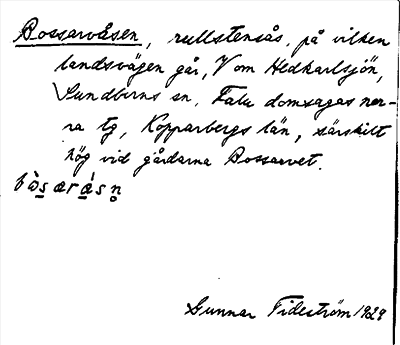 Bossarvåsen, rullstensås, på vilken
landsvägen går, V om Hedkarlsjön,
Sundborns sn, Falu domsagas nor-
ra tg, Kopparbergs län, särskilt
hög vid gårdarna Bossarvet.
Gunnar Tideström 1929